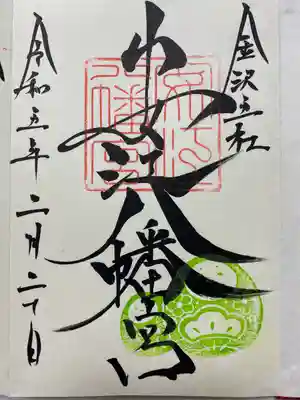 金沢五社
安江八幡宮
令和五年二月二十日